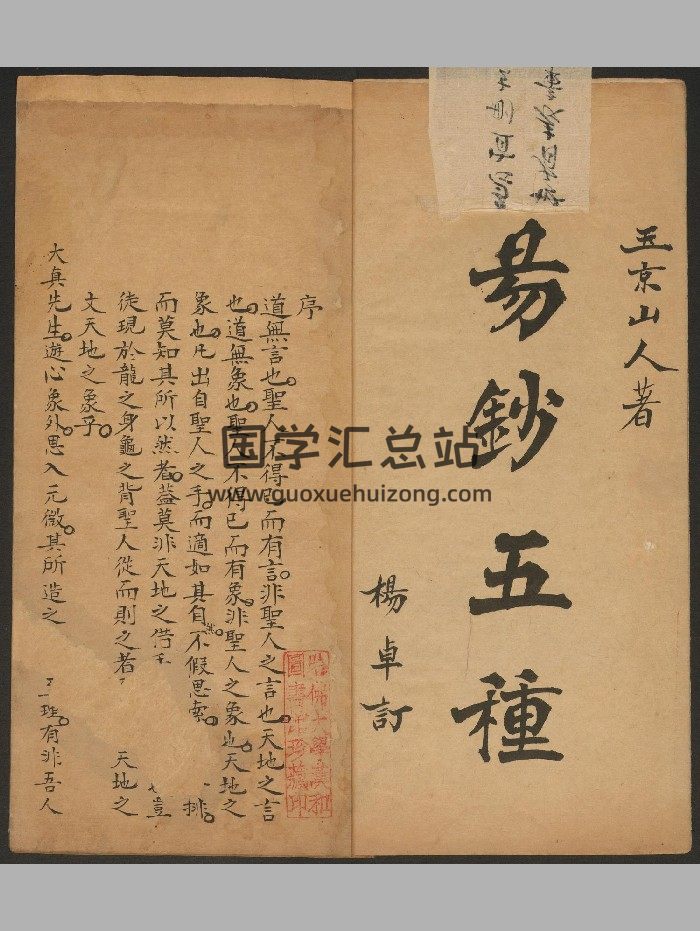 玉京山人著
易鈔五種
楊卓訂
序
道無言也聖人不得已而有言非聖人之言也天地之言
也道無象也聖人不得已而有象非聖人之象也天地之
象也凡出自聖人之手而適如其自然不假思索排
而莫知其所以然者蓋莫非天地之豈
徒現於龍之身龜之背聖人從而則之者天地之
文天地之象乎
大真先生遊心象外思入元微其所造之理有非吾人
哈佛大學漢和
圖書館珍藏印
国学汇总站
www.guoxuehuizong.com